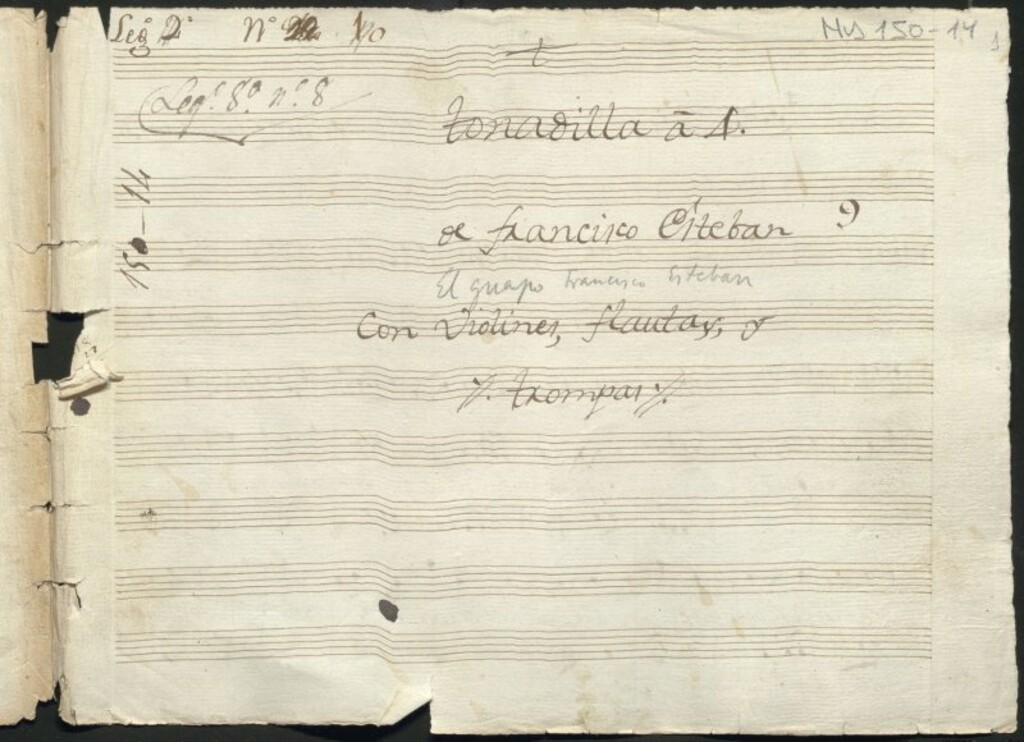 Leg.º 2º Nº 22 10
Mus 150-14
1
Leg.º 8º n.º 8
tonadilla â 4.
150-14
de francisco Esteban 9
El guapo Francisco Esteban
Con Violines, flautas, y
trompas